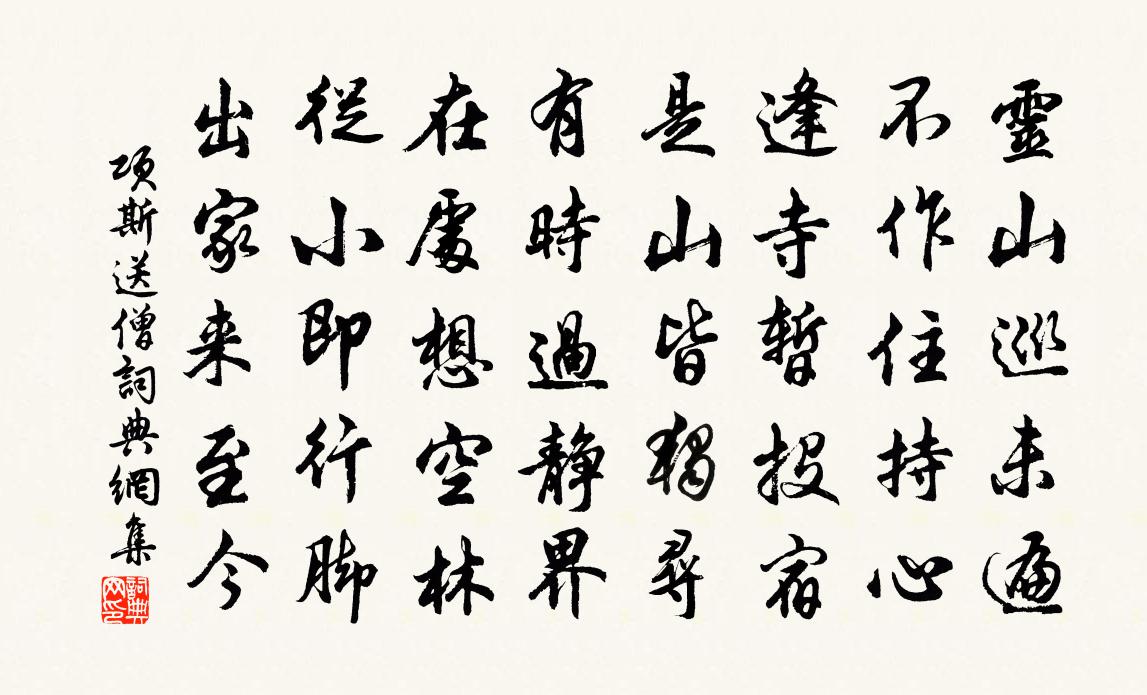 靈山巡未遍
不作住持心
逢寺暫投宿
是山皆獨尋
有時過静界
在處想空林
從小即行脚
出家来至今
项斯送僧詞典網集
詞典网印